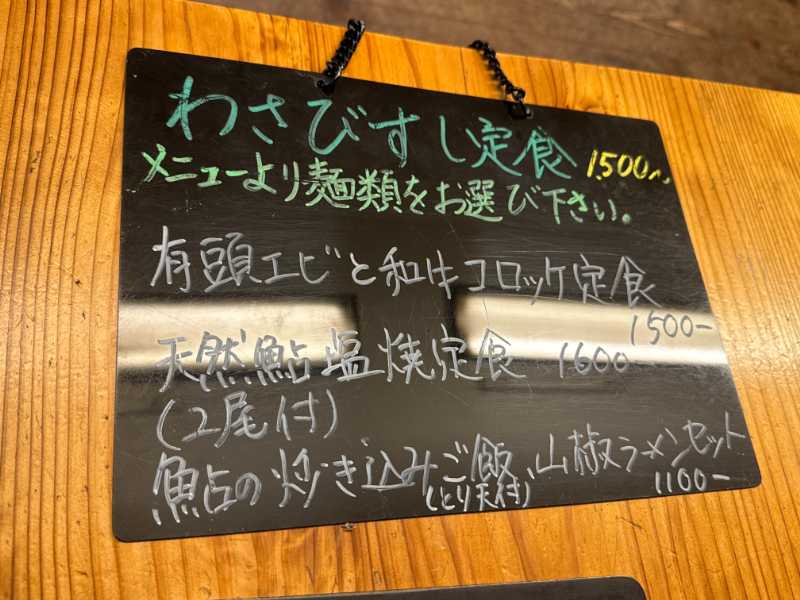 わさびずし定食 1,500～
メニューより麺類をお選び下さい。
有頭エビと和牛コロッケ定食
1500ー
天然鮎塩焼定食 1600
(2尾付)
鮎の炊き込みご飯、山椒ラーメンセット
(とり天付) 1100ー